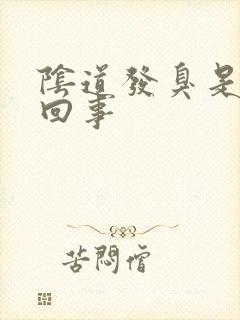 陰道發臭是
回事
苦悶僧